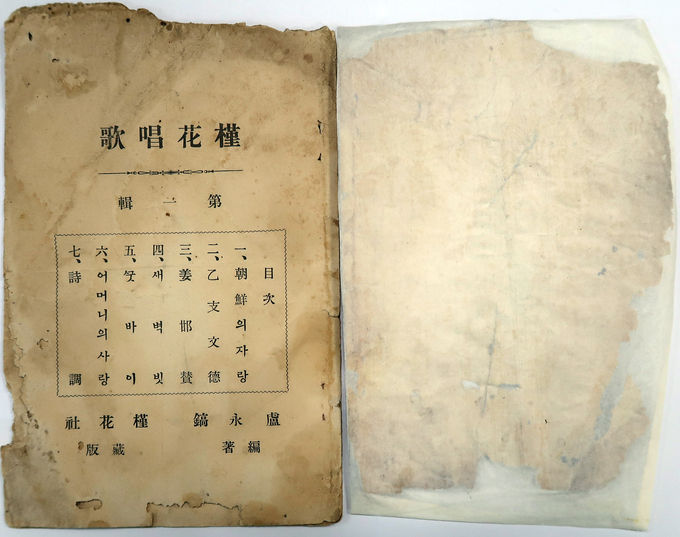 槿花唱歌
第一輯
目次
一、朝鮮의자랑
二、乙支文德
三、姜邯賛
四、새벽빗
五、
六、어머니의사랑
七、詩調
盧永鎬 編著
槿花社 藏版